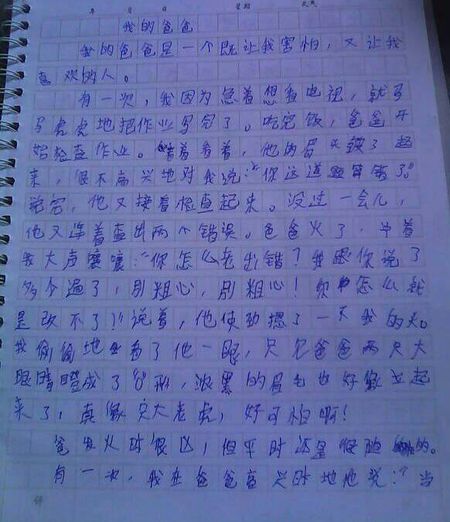 年 月 日 星期 天气
我的爸爸
我的爸爸是一个既让我害怕，又让我
喜欢的人。
有一次，我因为急着想看电视，就马
马虎虎地把作业写完了。吃完饭，爸爸开
始检查作业。看着看着，他的眉头皱了起
来，很不高兴地对我说：“你这道题算错了。”
说完，他又接着检查起来。没过一会儿，
他又连着查出两个错误。爸爸火了，
我大声嚷嚷：“你怎么老出错？我跟你说了
多少遍了，别粗心，别粗心！你怎么就
是改不了！”说着，他使劲摁了一下我的头。
我偷偷地看了他一眼，只见爸爸两只大
眼睛瞪成了“0”形，浓黑的眉毛也好像立起
来了，真像只大老虎，好可怕啊！
爸发火时很凶，但平时还是很 的。
有一次，我在爸爸高兴时地他说：“当